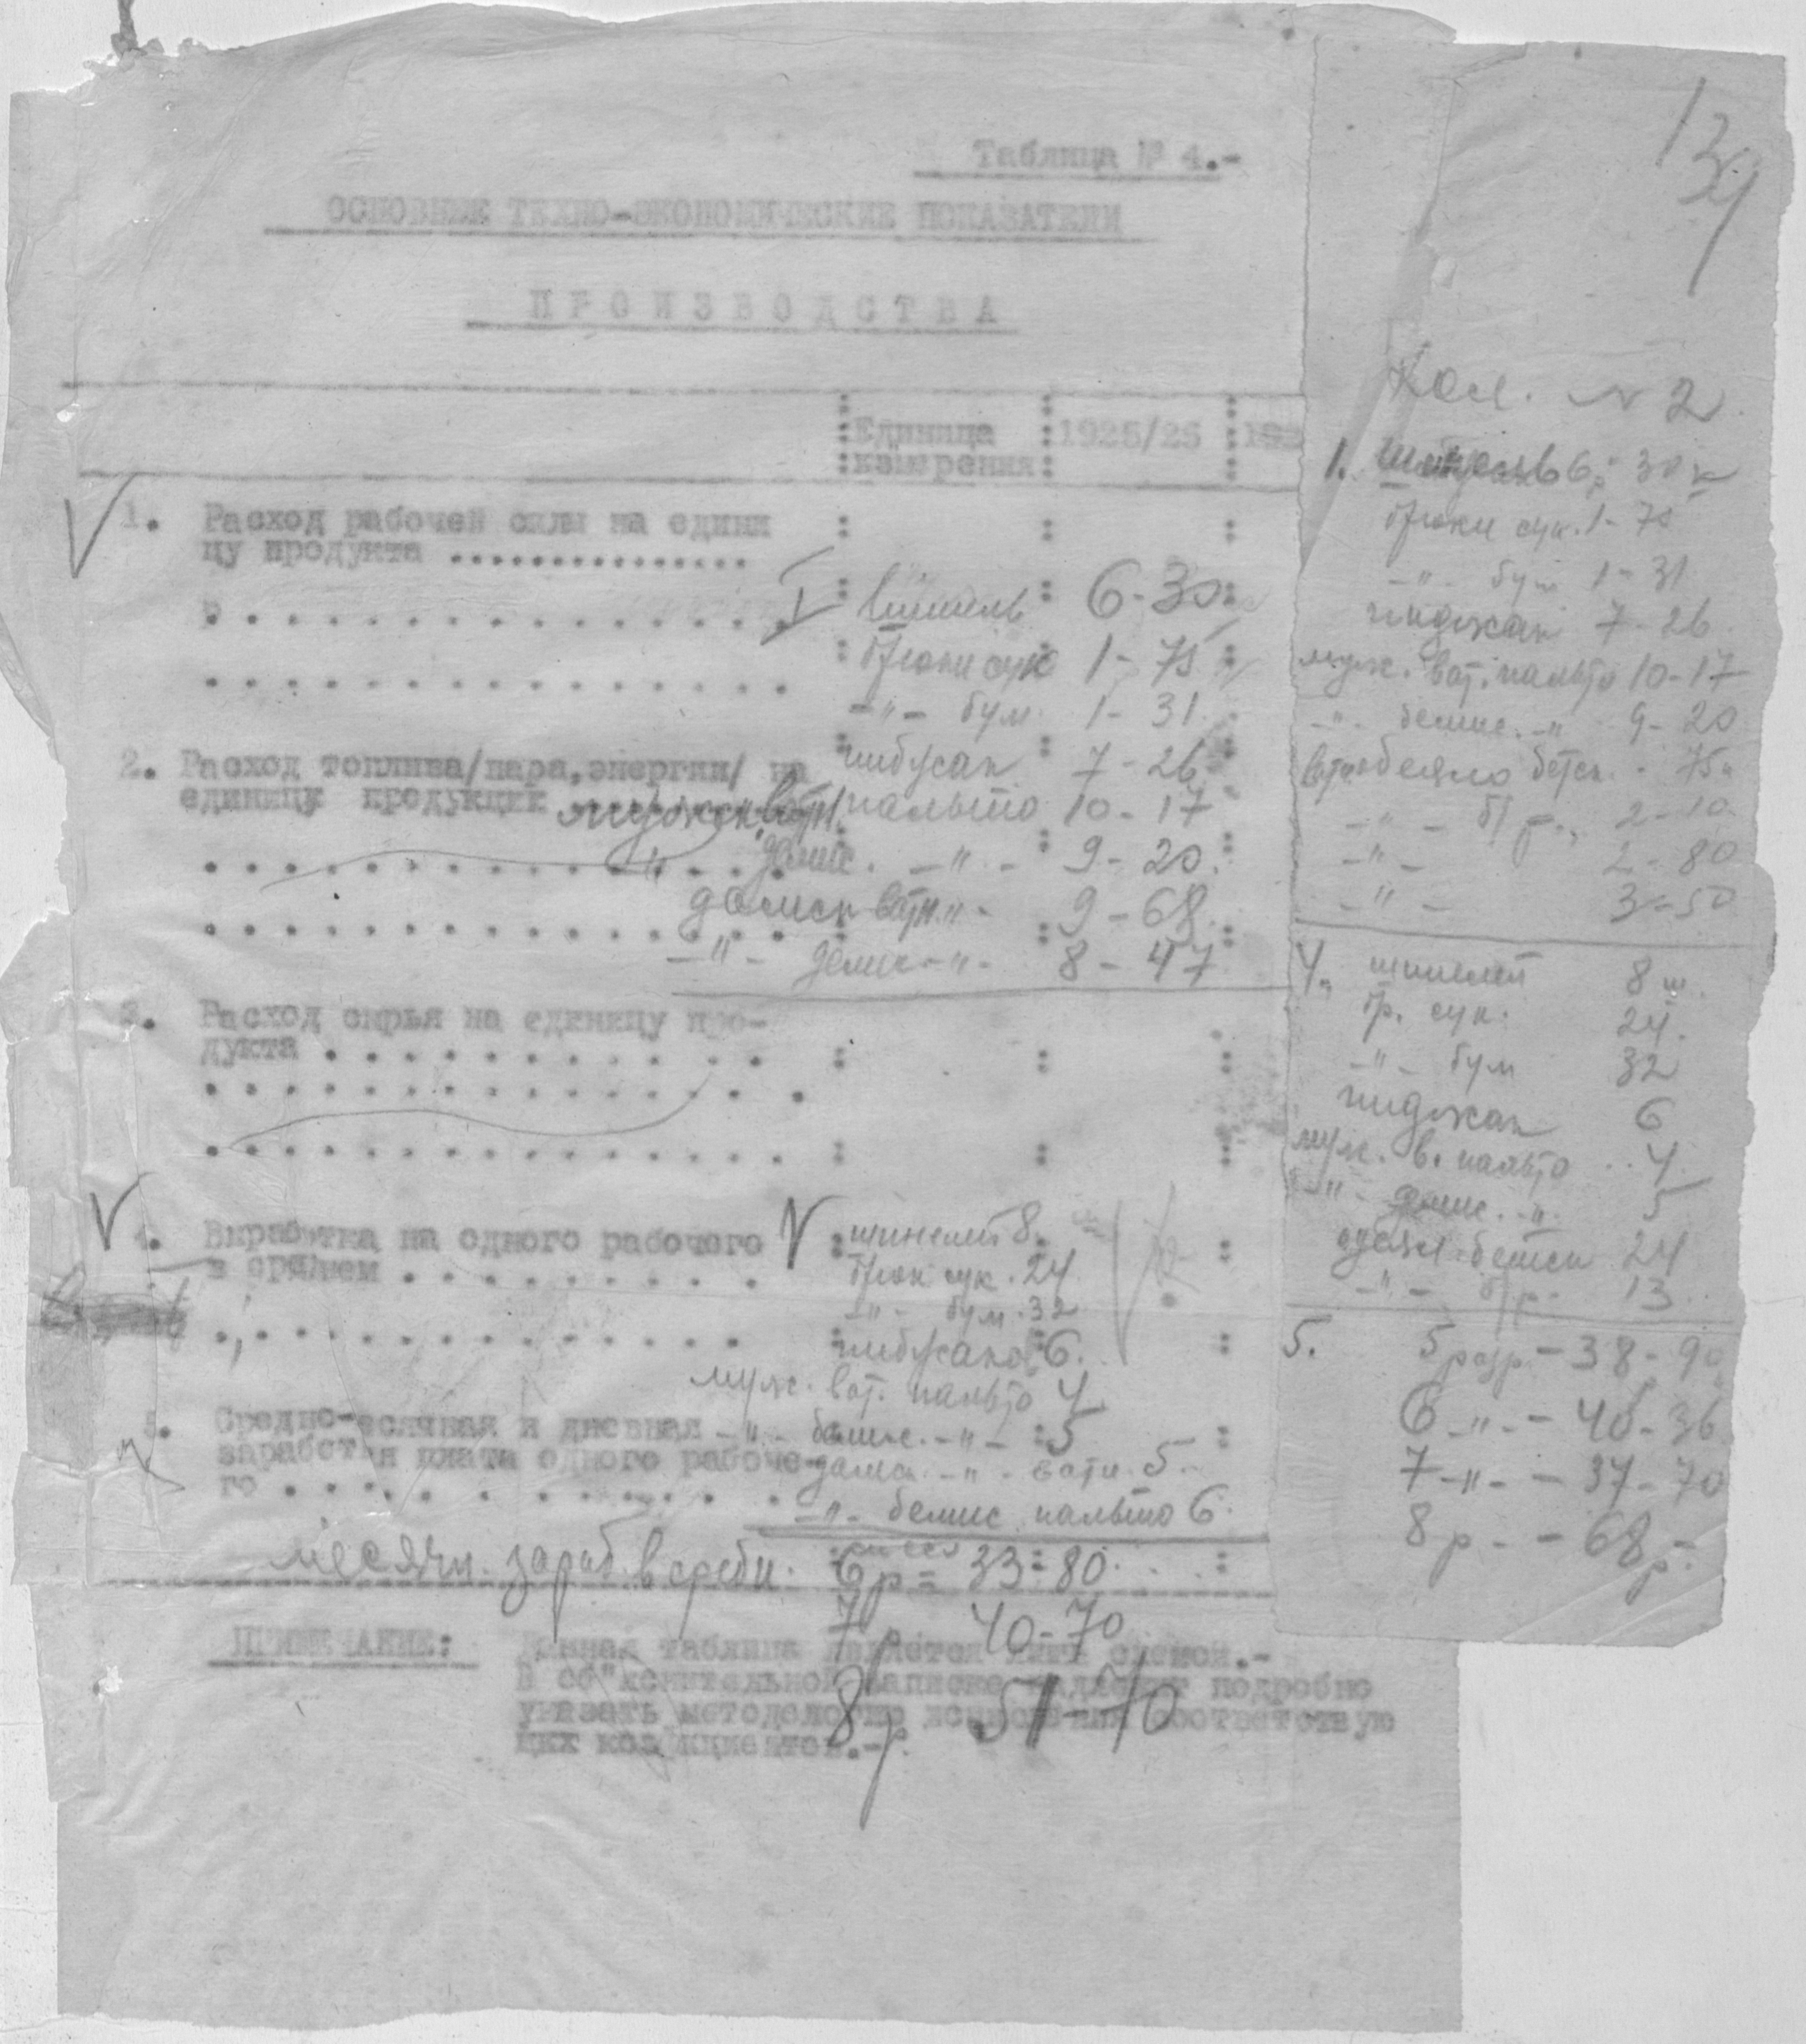 139
Таблица № 4.-
ОСНОВНЫЕ ТЕХНО-ЭКОНОМИЧЕСКИЕ ПОКАЗАТЕЛИ
ПРОИЗВОДСТВА
Единица измерения
1925/26
192
1. Расход рабочей силы на едини
цу продукта ...............
I шинель 6-30
брюки сук 1-75
-"- бум. 1-31
пиджак 7-26
2. Расход топлива/пара, энергии/ на
единицу продукции
мужск. ватн. пальто 10-17
" демис. -"- 9-20.
дамск ватн. "- 9-68
-"- демис -"- 8-47
3. Расход сырья на единицу про-
дукта . . . . . . . . . . . .
4. Выработка на одного рабочего
в среднем . . . . . . . . .
V шинелей 8.
брюк сук. 24
-"- бум. 32
пиджаков 6.
муж. ват. пальто 4
-"- демис. -"- 5
дамск. -"- ватн. 5.-
-"- демис пальто 6.
5. Средне-месячная и дневная
заработная плата одного рабоче-
го . . . . . . . . . . . .
месячн. зараб. в средн. 6р = 33-80
7р 40-70
8р 51-70
ПРИМЕЧАНИЕ: Данная таблица является лишь схемой.-
В об"яснительной записке надлежит подробно
указать методологию исчисления соответствую
щих коэфициентов.-
Кол. № 2
1. шинель 6р 30к
брюки сук. 1-75
-"- бум 1-31
пиджак 7-26
муж. ват. пальто 10-17
-"- демис. -"- 9-20
одеяло детск. - 75к
-"- б/р. 2-10
-"- 2-80
-"- 3-50
4. шинелей 8 ш.
бр. сук. 24.
-"- бум 32
пиджак 6
муж. в. пальто 4
-"- демис. -"- 5
одеял. детск 24
-"- б/р- 13
5. 5 разр - 38-90
6 -"- - 40-36
7 -"- - 37-70
8 р - - 68р-